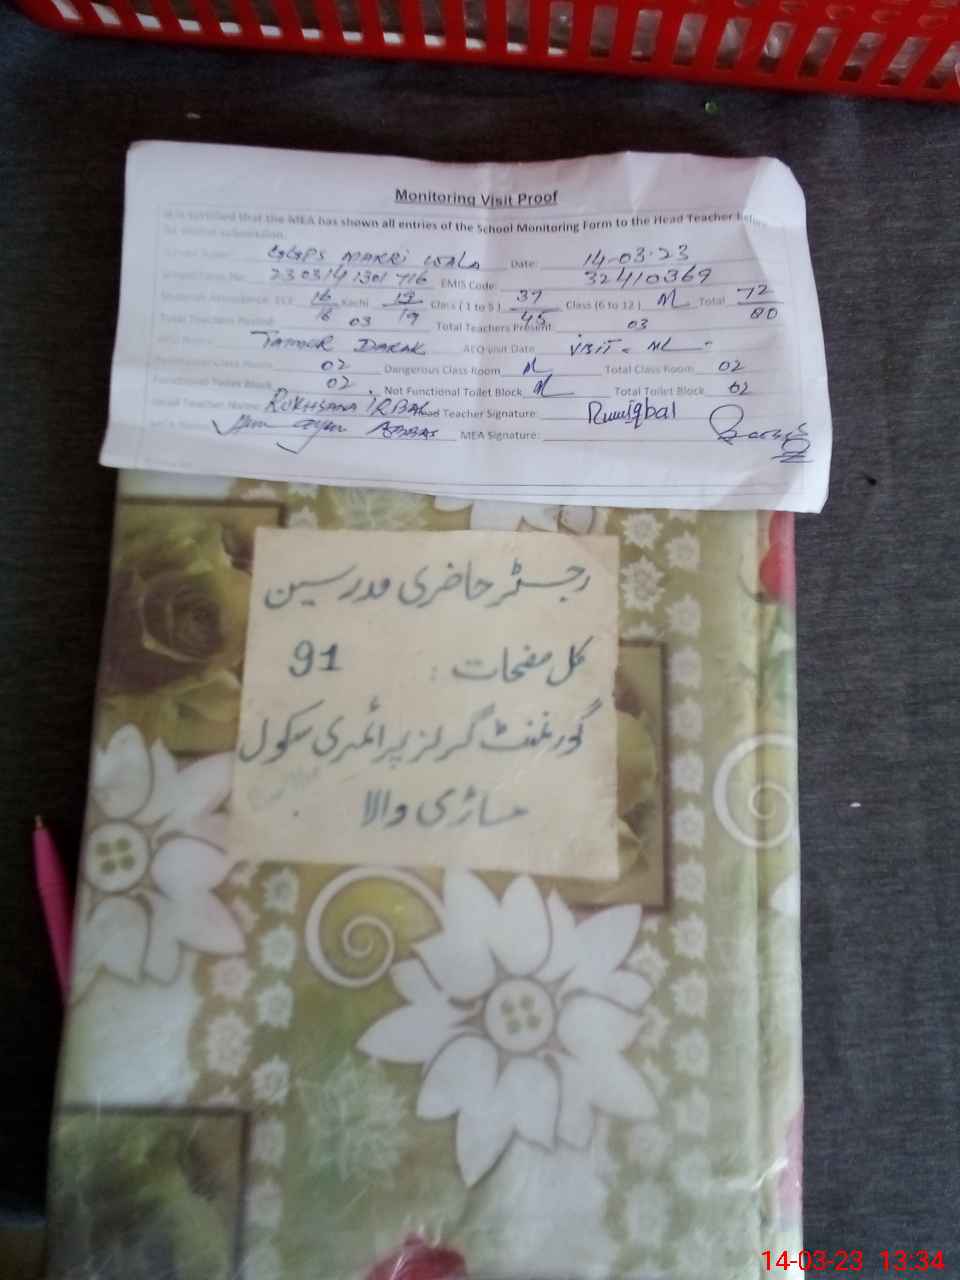 Monitoring Visit Proof
It is certified that the MEA has shown all entries of the School Monitoring Form to the Head Teacher before
submission.
School Name: GGPS MAKRI WALA Date: 14-03-23
EMIS Code: 32410369
Student Attendance: ECE 16/16 Kachi 19/19 Class (1 to 5) 37/45 Class (6 to 12) NL Total 72/80
Total Teachers Posted: 03 Total Teachers Present: 03
AEO Name: DARAK AEO Visit Date VISIT - NL -
Class Room 02 Dangerous Class Room NL Total Class Room 02
Functional Toilet Block 02. Not Functional Toilet Block NL Total Toilet Block 02
Head Teacher Name: RUKHSANA IQBAL Head Teacher Signature: Iqbal
ABBAS MEA Signature:
رجسٹر حاضری مدرسین
کل صفحات : 91
گورنمنٹ گرلز پرائمری سکول
والا
14-03-23 13:34